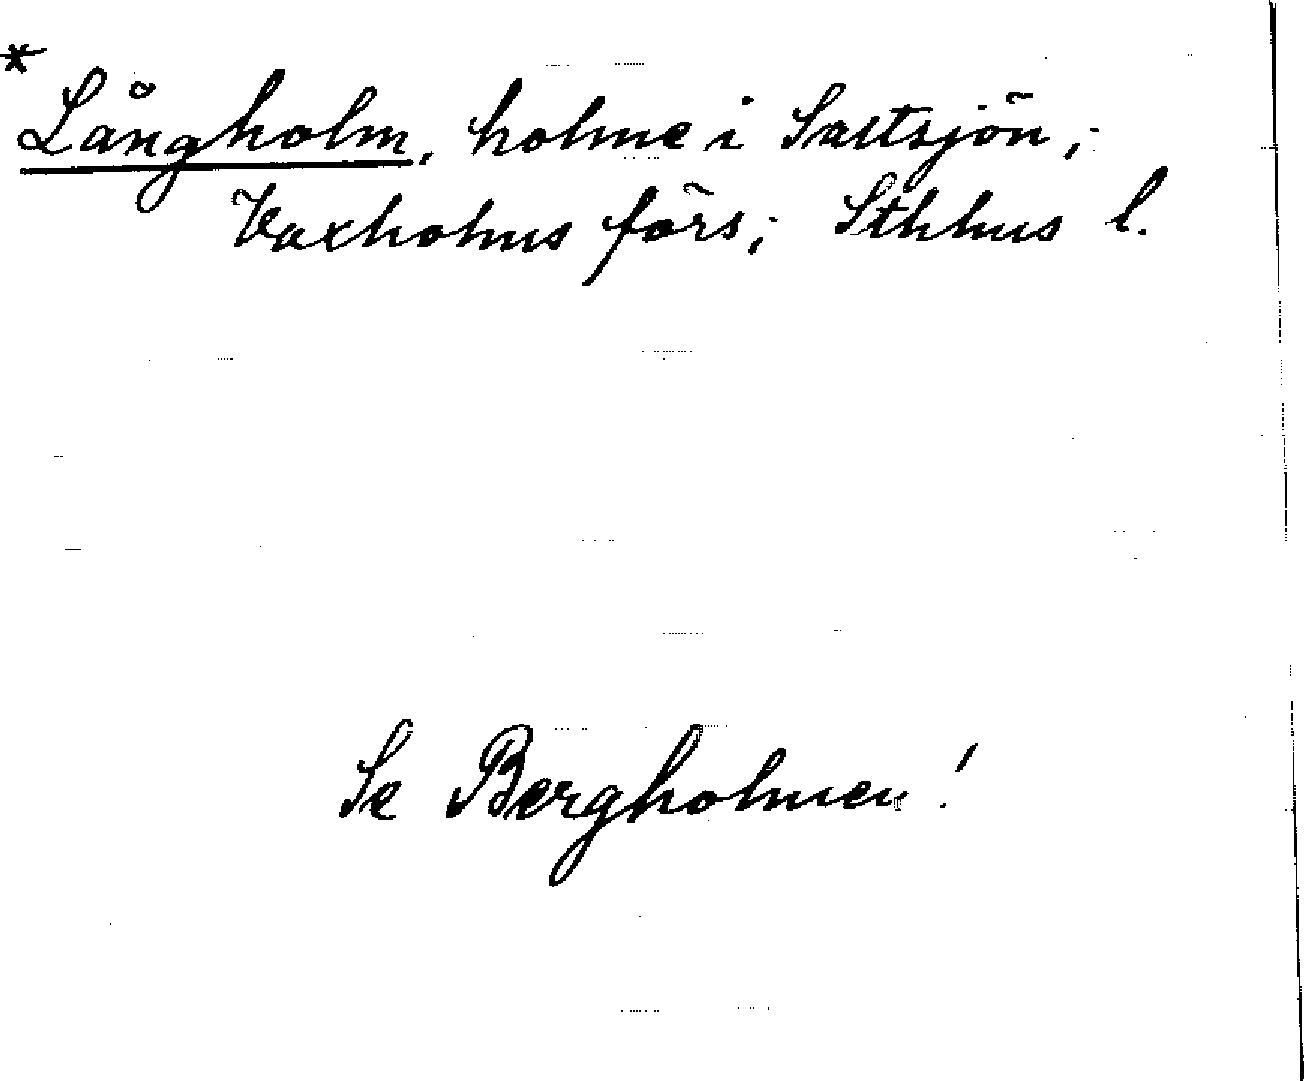 * Långholm, holme i Saltsjön,
Vaxholms förs; Sthlms l.
Se Bergholmen!